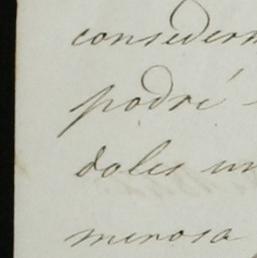 consederm
podré
doles un
merosa